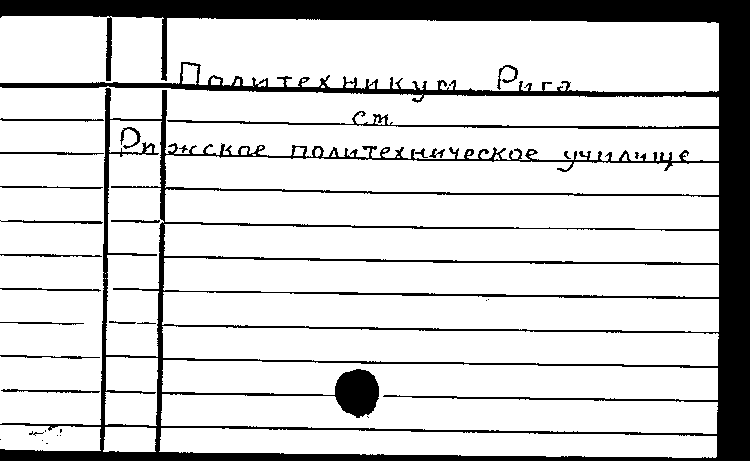 Политехникум. Рига
см.
Рижское политехническое училище.